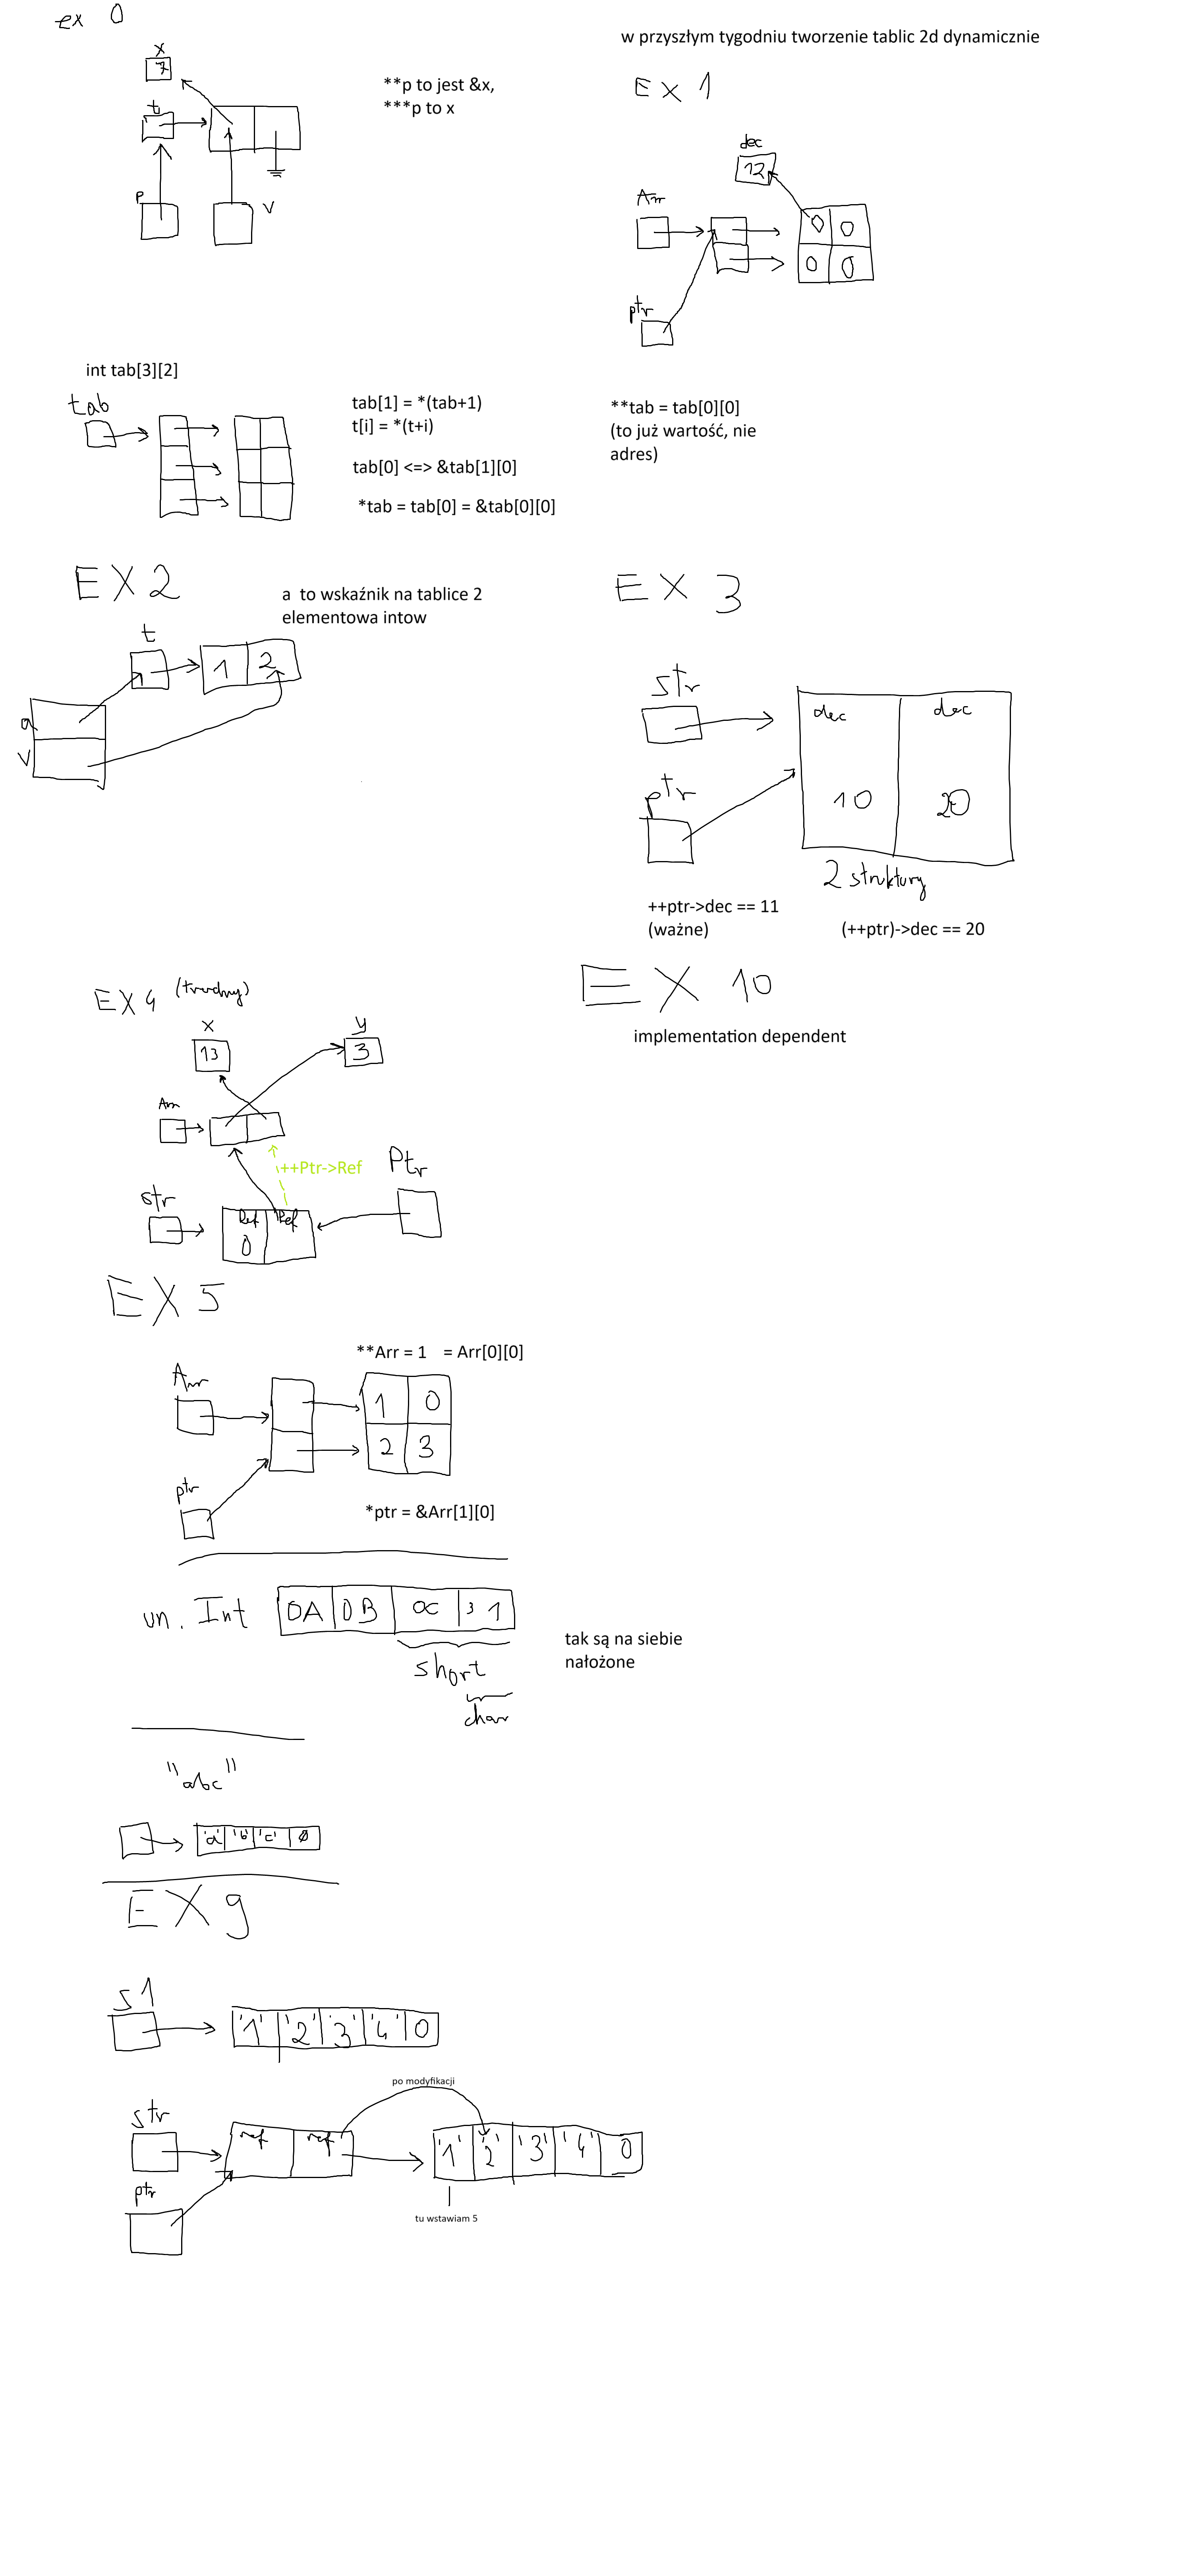 ex 0
x
7
t
p
v
**p to jest &x,
***p to x
w przyszłym tygodniu tworzenie tablic 2d dynamicznie
EX 1
dec
12
Arr
0 0
0 0
ptr
int tab[3][2]
tab
tab[1] = *(tab+1)
t[i] = *(t+i)
tab[0] <=> &tab[1][0]
*tab = tab[0] = &tab[0][0]
**tab = tab[0][0]
(to już wartość, nie
adres)
EX 2
a to wskaźnik na tablice 2
elementowa intow
t
1 2
a
v
EX 3
str
dec dec
ptr
10 20
2 struktury
++ptr->dec == 11
(ważne)
(++ptr)->dec == 20
EX 4 (trudny)
x y
13 3
Arr
++Ptr->Ref
Ptr
str
Ref Ref
0
EX 10
implementation dependent
EX 5
**Arr = 1 = Arr[0][0]
Arr
1 0
2 3
ptr
*ptr = &Arr[1][0]
un. Int 0A 0B 0C 31
short
char
tak są na siebie
nałożone
"abc"
'a' 'b' 'c' 0
EX 9
s1
'1' '2' '3' '4' 0
po modyfikacji
str
ref ref
'1' '2' '3' '4' 0
ptr
tu wstawiam 5